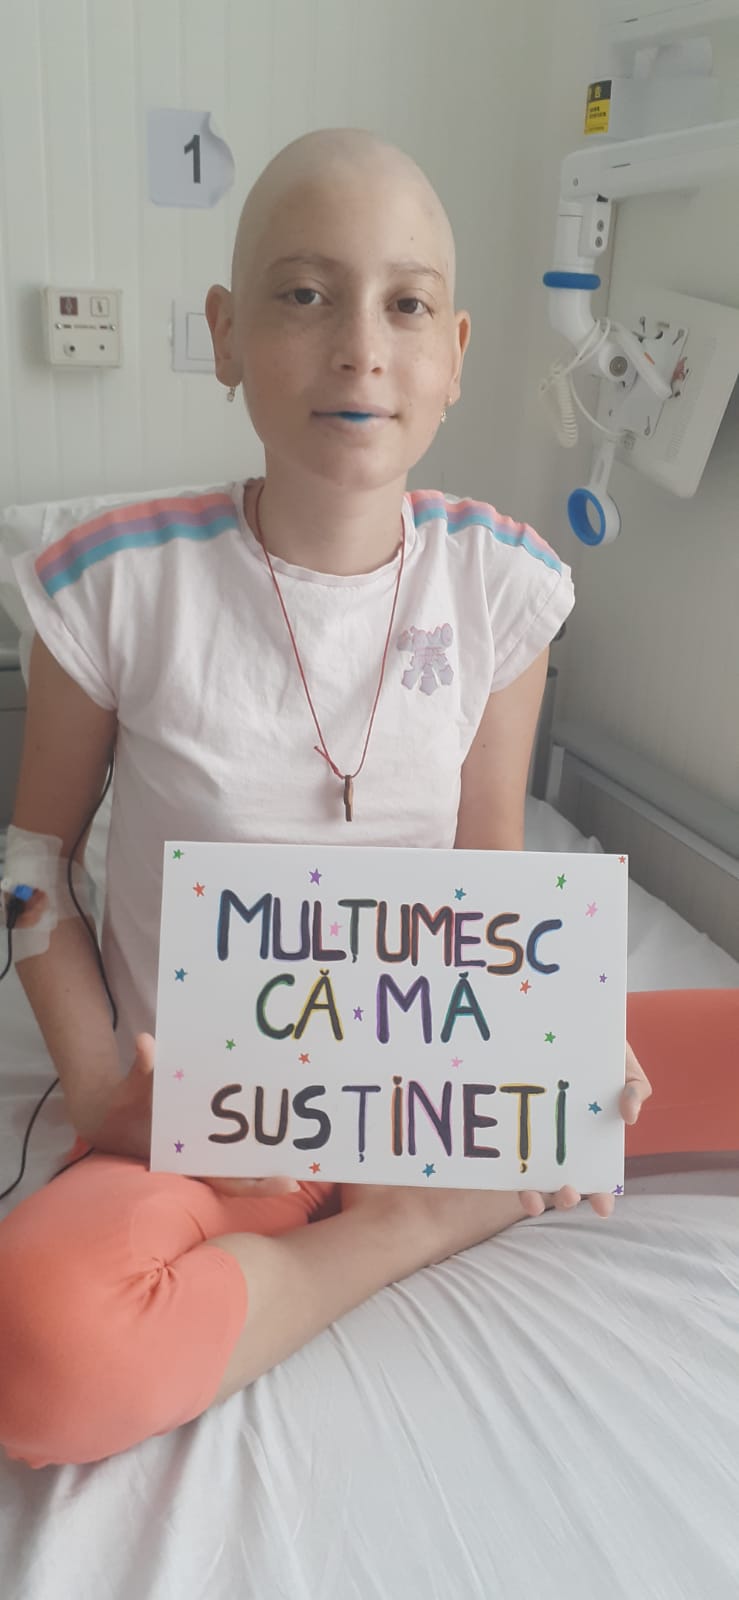 1
MULȚUMESC
CĂ MĂ
SUSȚINEȚI